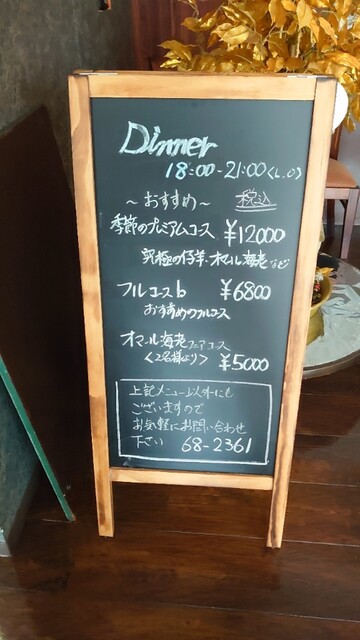 Dinner
18:00-21:00(L.O)
~おすすめ~ 税込
季節のプレミアムコース ¥12000
究極の仔羊・オマール海老など
フルコースb ¥6800
おすすめのフルコース
オマール海老フェアコース
<2名様より> ¥5000
上記メニュー以外にも
ございますので
お気軽にお問い合わせ
下さい 68-2361